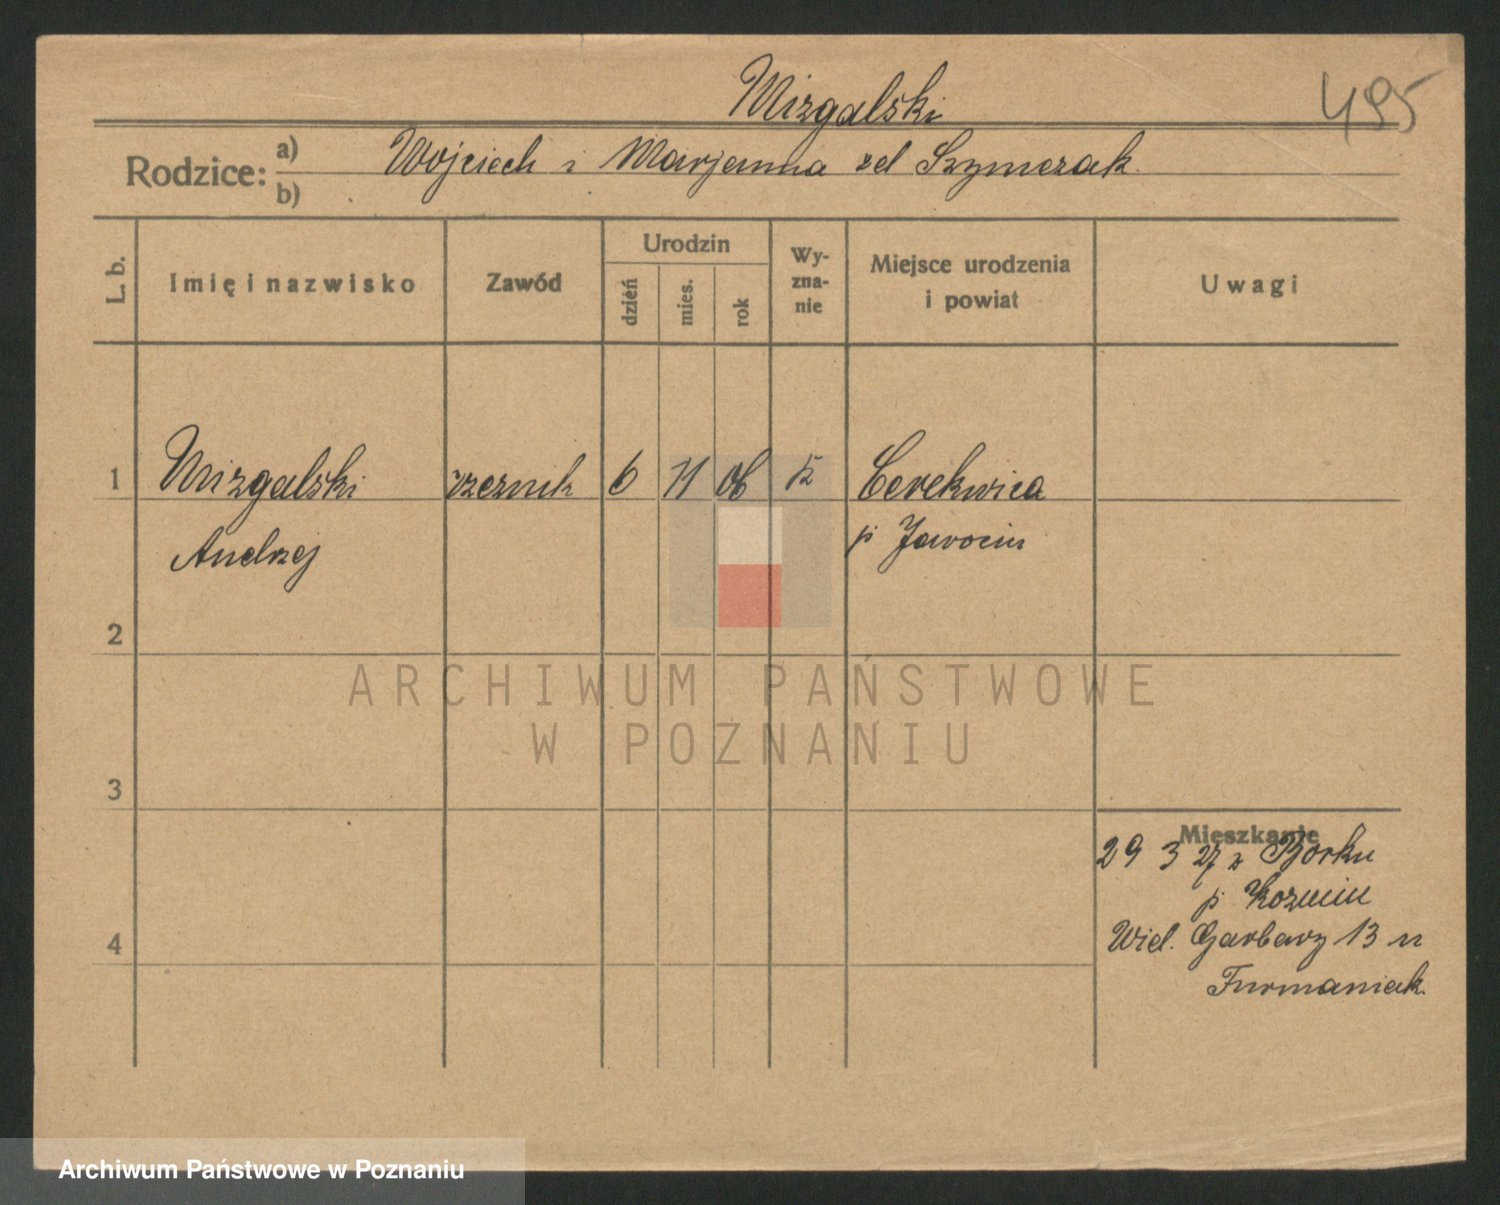 Mizgalski
495
Rodzice: a) Wojciech i Marjanna zd Szymczak
b)
L. b.
Imię i nazwisko
Zawód
Urodzin
dzień
mies.
rok
Wy-
zna-
nie
Miejsce urodzenia
i powiat
Uwagi
1 Mizgalski rzeznik 6 11 06 k Cerekwica
Andrzej p Jarocin
2
3
4
Mieszkanie
29 3 27 z Borku
p Kozmin
Wiel. Garbary 13 u
Furmaniak
ARCHIWUM PAŃSTWOWE
W POZNANIU
Archiwum Państwowe w Poznaniu